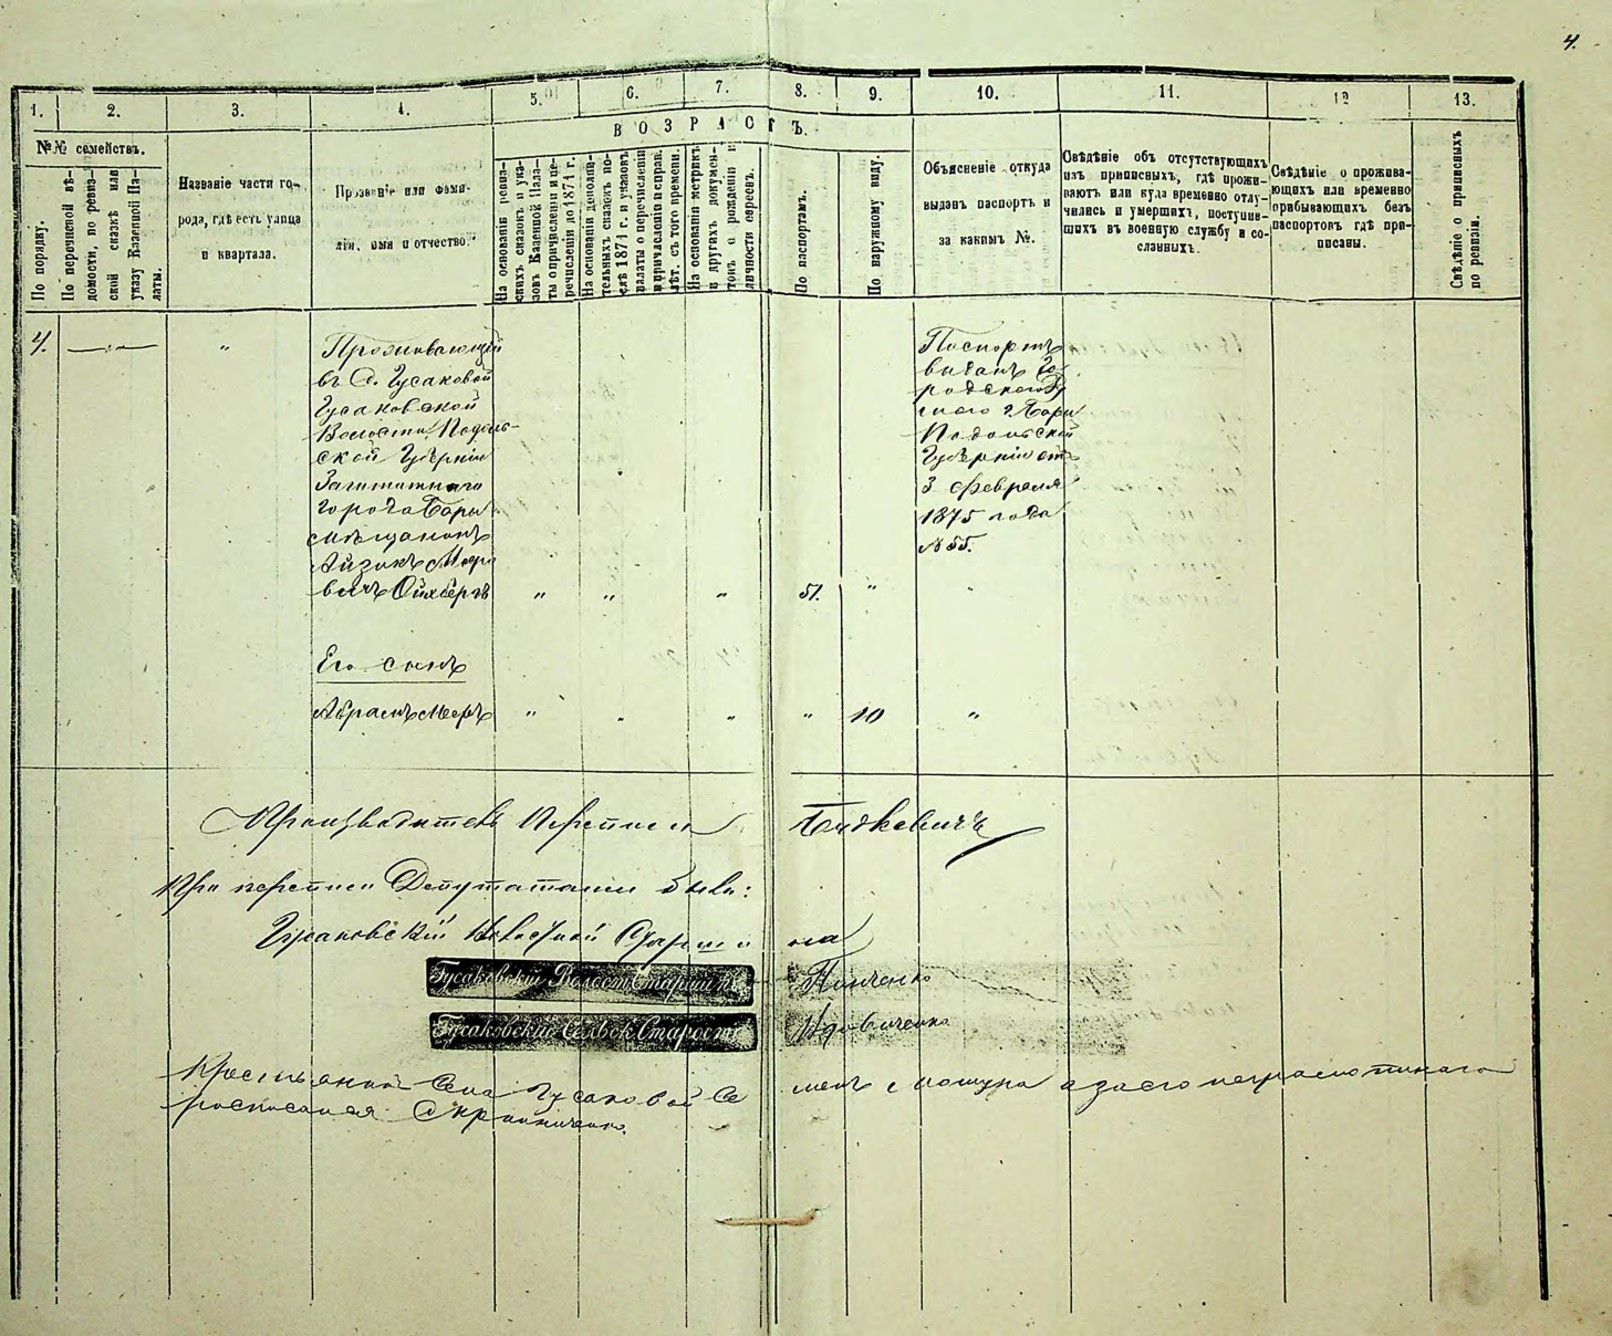 4.
1. 2. 3. 4. 5. 6. 7. 8. 9. 10. 11. 12 13.
ВОЗРАСТЪ.
№№ семействъ.
По порядку.
По перечневой вѣ-
домости, по ревиз-
ской сказкѣ или
указу Казенной Па-
латы.
Названіе части го-
рода, гдѣ есть улица
и квартала.
Прозваніе или фами-
лія, имя и отчество.
На основаніи ревиз-
скихъ сказокъ и ука-
зовъ Казенной Пала-
ты о причисленіи и пе-
речисленіи до 1871 г.
На основаніи дополни-
тельныхъ сказокъ по-
слѣ 1871 г. и указовъ
палаты о перечисленіи
и причисленіи и справ.
лѣт. съ того времени.
На основаніи метрикъ
и другихъ докумен-
товъ о рожденіи и
личности евреевъ.
По паспортамъ.
По наружному виду.
Объясненіе откуда
выданъ паспортъ и
за какимъ №.
Свѣдѣніе объ отсутствующихъ
изъ приписныхъ, гдѣ прожи-
ваютъ или куда временно отлу-
чились и умершихъ, поступив-
шихъ въ военную службу и со-
сланныхъ.
Свѣдѣніе о прожива-
ющихъ или временно
прибывающихъ безъ
паспортовъ гдѣ при-
писаны.
Свѣдѣніе о приписныхъ
по ревизіи.
4. — " — "
Проживающій
въ С. Гусаковой
Гусаковской
Волости, Подоль-
ской Губерніи
Заштатнаго
города Бара
мѣщанинъ
Айзикъ Меро
вичъ Ойхбергъ " " " 51. "
Паспортъ
выданъ Го
родскою
г. Бара
Подольской
Губерніи отъ
3 февраля
1875 года
№ 55.
Его сынъ
Абрамъ Меръ " " " " 10 "
Производитель переписи
При переписи Депутатами были:
Гусаковскій Волостной Старшина
Гусаковскій Волост. Старшина
Гусаковскій Сельск. Староста
Крестьянинъ Села Гусаковой Се
менъ а за его неграмотнаго
росписался